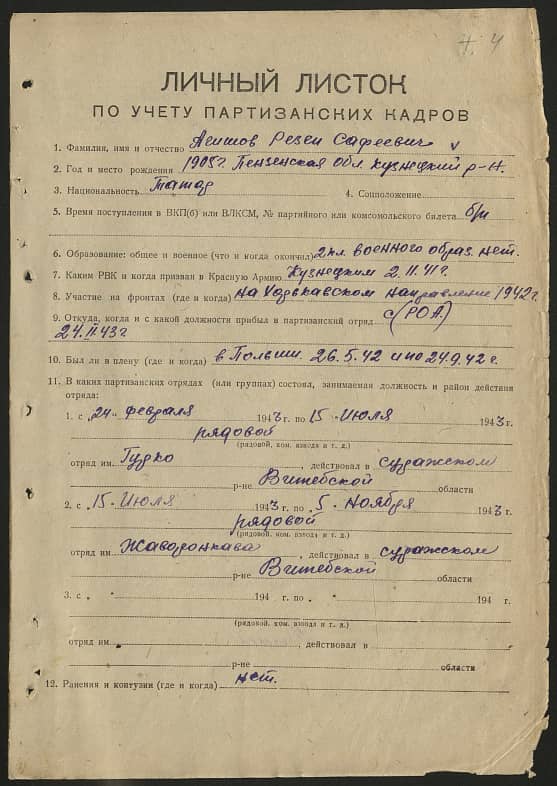 Н. 4
ЛИЧНЫЙ ЛИСТОК
ПО УЧЕТУ ПАРТИЗАНСКИХ КАДРОВ
1. Фамилия, имя и отчество Асимов Резен Сафеевич v
2. Год и место рождения 1905г. Пензенская Обл. Кузнецкий р-н.
3. Национальность Татар 4. Соцположение
5. Время поступления в ВКП(б) или ВЛКСМ, № партийного или комсомольского билета б/п
6. Образование: общее и военное (что и когда окончил) 2 кл. военного образ. нет.
7. Каким РВК и когда призван в Красную Армию Кузнецким 2.11.41г.
8. Участие на фронтах (где и когда) на Харькавском направление 1942г.
9. Откуда, когда и с какой должности прибыл в партизанский отряд с (РОА)
24.II.43г
10. Был ли в плену (где и когда) в Польши 26.5.42 и по 24.9.42г.
11. В каких партизанских отрядах (или группах) состоял, занимаемая должность и район действия
отряда:
1. с „24" февраля 1943 г. по 15 Июля 1943 г.
рядовой
(рядовой, ком. взвода и т. д.)
отряд им. Гурко, действовал в суражском
р-не Витебской области
2. с „15. Июля 1943 г. по „5. Ноября 1943 г.
рядовой
(рядовой, ком. взвода и т. д.)
отряд им Жаворонкава, действовал в суражском
р-не Витебской области
3. с „ " 194 г. по „ " 194 г.
(рядовой, ком. взвода и т. д.)
отряд им. , действовал в
р-не области
12. Ранения и контузии (где и когда) нет.